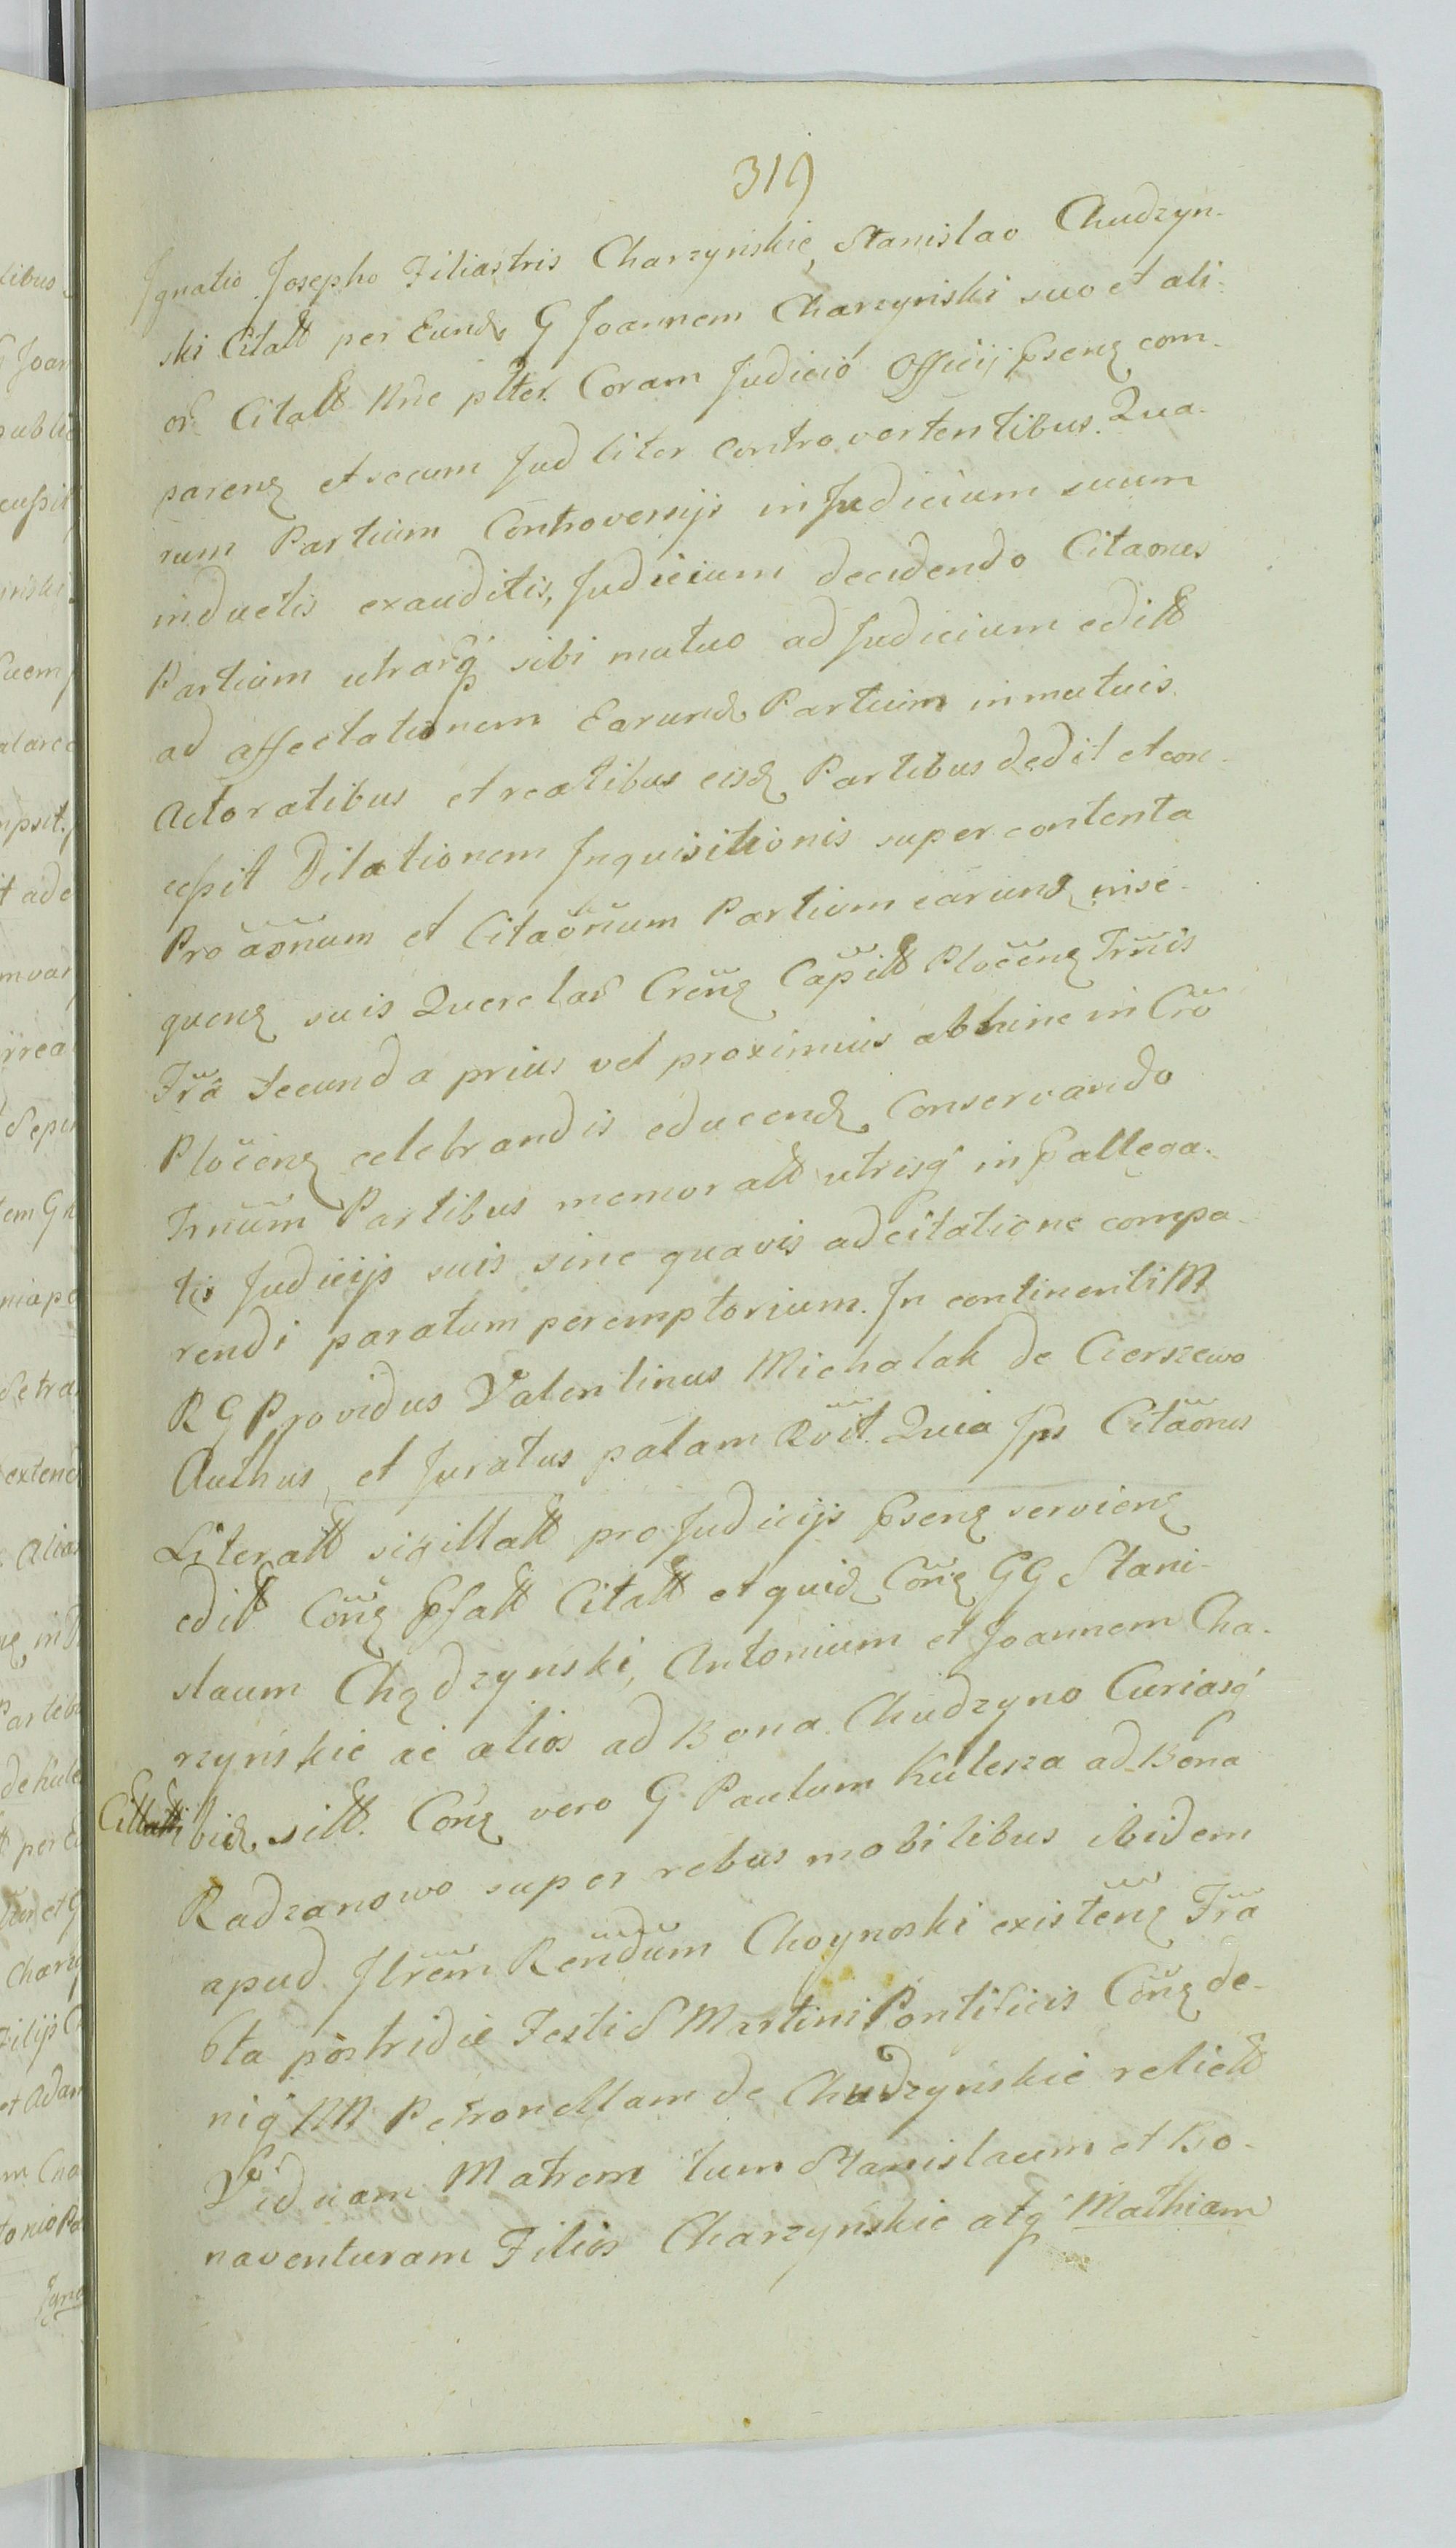 319
Ignatio Josepho Filiastris Charzynskie, Stanislao Chudzyn-
ski Citatt per Eund G Joannem Charzynski suo et ali-
or Citatt Nne ptter. Coram Judicio Officij pseng com-
pareng et secum Judliter controvertentibus. Qua-
rum Partium Controversijs in Judicium suum
inductis exauditis, Judicium decidendo Citaones
Partium utrarq sibi mutuo ad Judicium editt
ad affectationem Earund Partium in mutuis
Actoratibus et reatibus eisd Partibus dedit et con-
cessit Dilationem Inquisitionis super contenta
Proaonum et Citaonum Partium earund inse-
queng suis Querelar Creng Capitt Ploceng Trnis
Fra Secunda prius vel proximius abhinc in Cro
Ploceng celebrandis educend, Conservando
Trnum Partibus memoratt utrisq in p allega-
tis Judicijs suis sine quavis adcitatione compa-
rendi paratum peremptorium. In continenti M
R G Providus Valentinus Michalak de Cierszewo
Authus, et Juratus palam Rvit. Quia Ips Citaones
Literatt sigillatt pro Judicijs pseng servieng
editt Cong psatt Citatt et quid Cong GG Stani-
slaum Chądzynski, Antonium et Joannem Cha-
rzynskie ac alios ad Bona Chudzyno Curiasq
ibid sitt. Cong vero G Paulum Kulesza ad Bona
Radzanowo super rebus mobilibus ibidem
apud Ilrem Rendum Choynoski existeng Fra
6ta postridie Festi S Martini Pontificis Cong de-
niq NN Petronellam de Chudzynskie relictt
Viduam Matrem tum Stanislaum et Bo-
naventuram Filios Charzynskie atq Mathiam